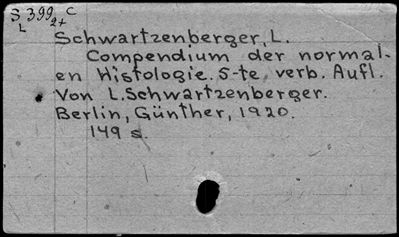 S 399 C
L 2+
Schwartzenberger, L.
Compendium der normal-
en Histologie. 5-te, verb. Aufl.
Von L. Schwartzenberger.
Berlin, Günther, 1920.
149 s.